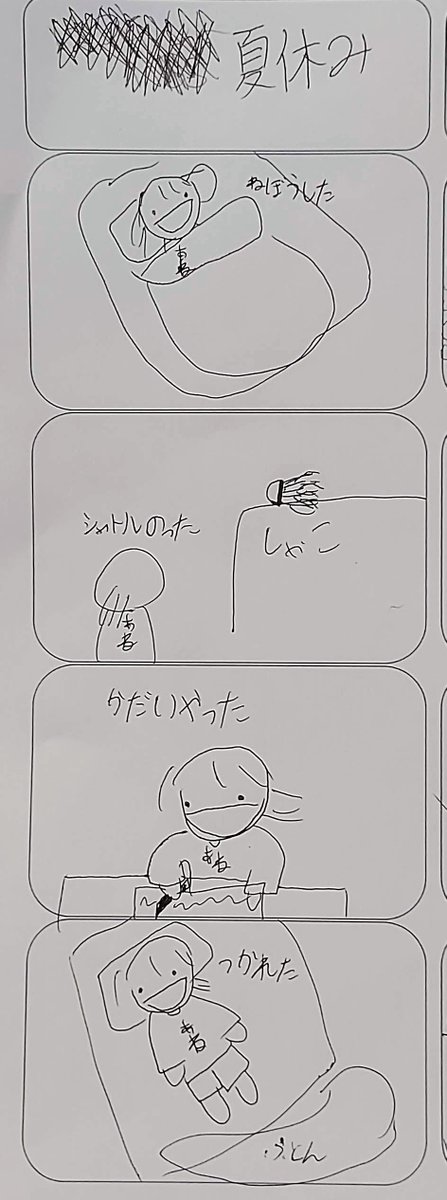 夏休み
ねぼうした
あね
シャトルのった
しゃこ
あね
かだいやった
あね
つかれた
あね
ふとん